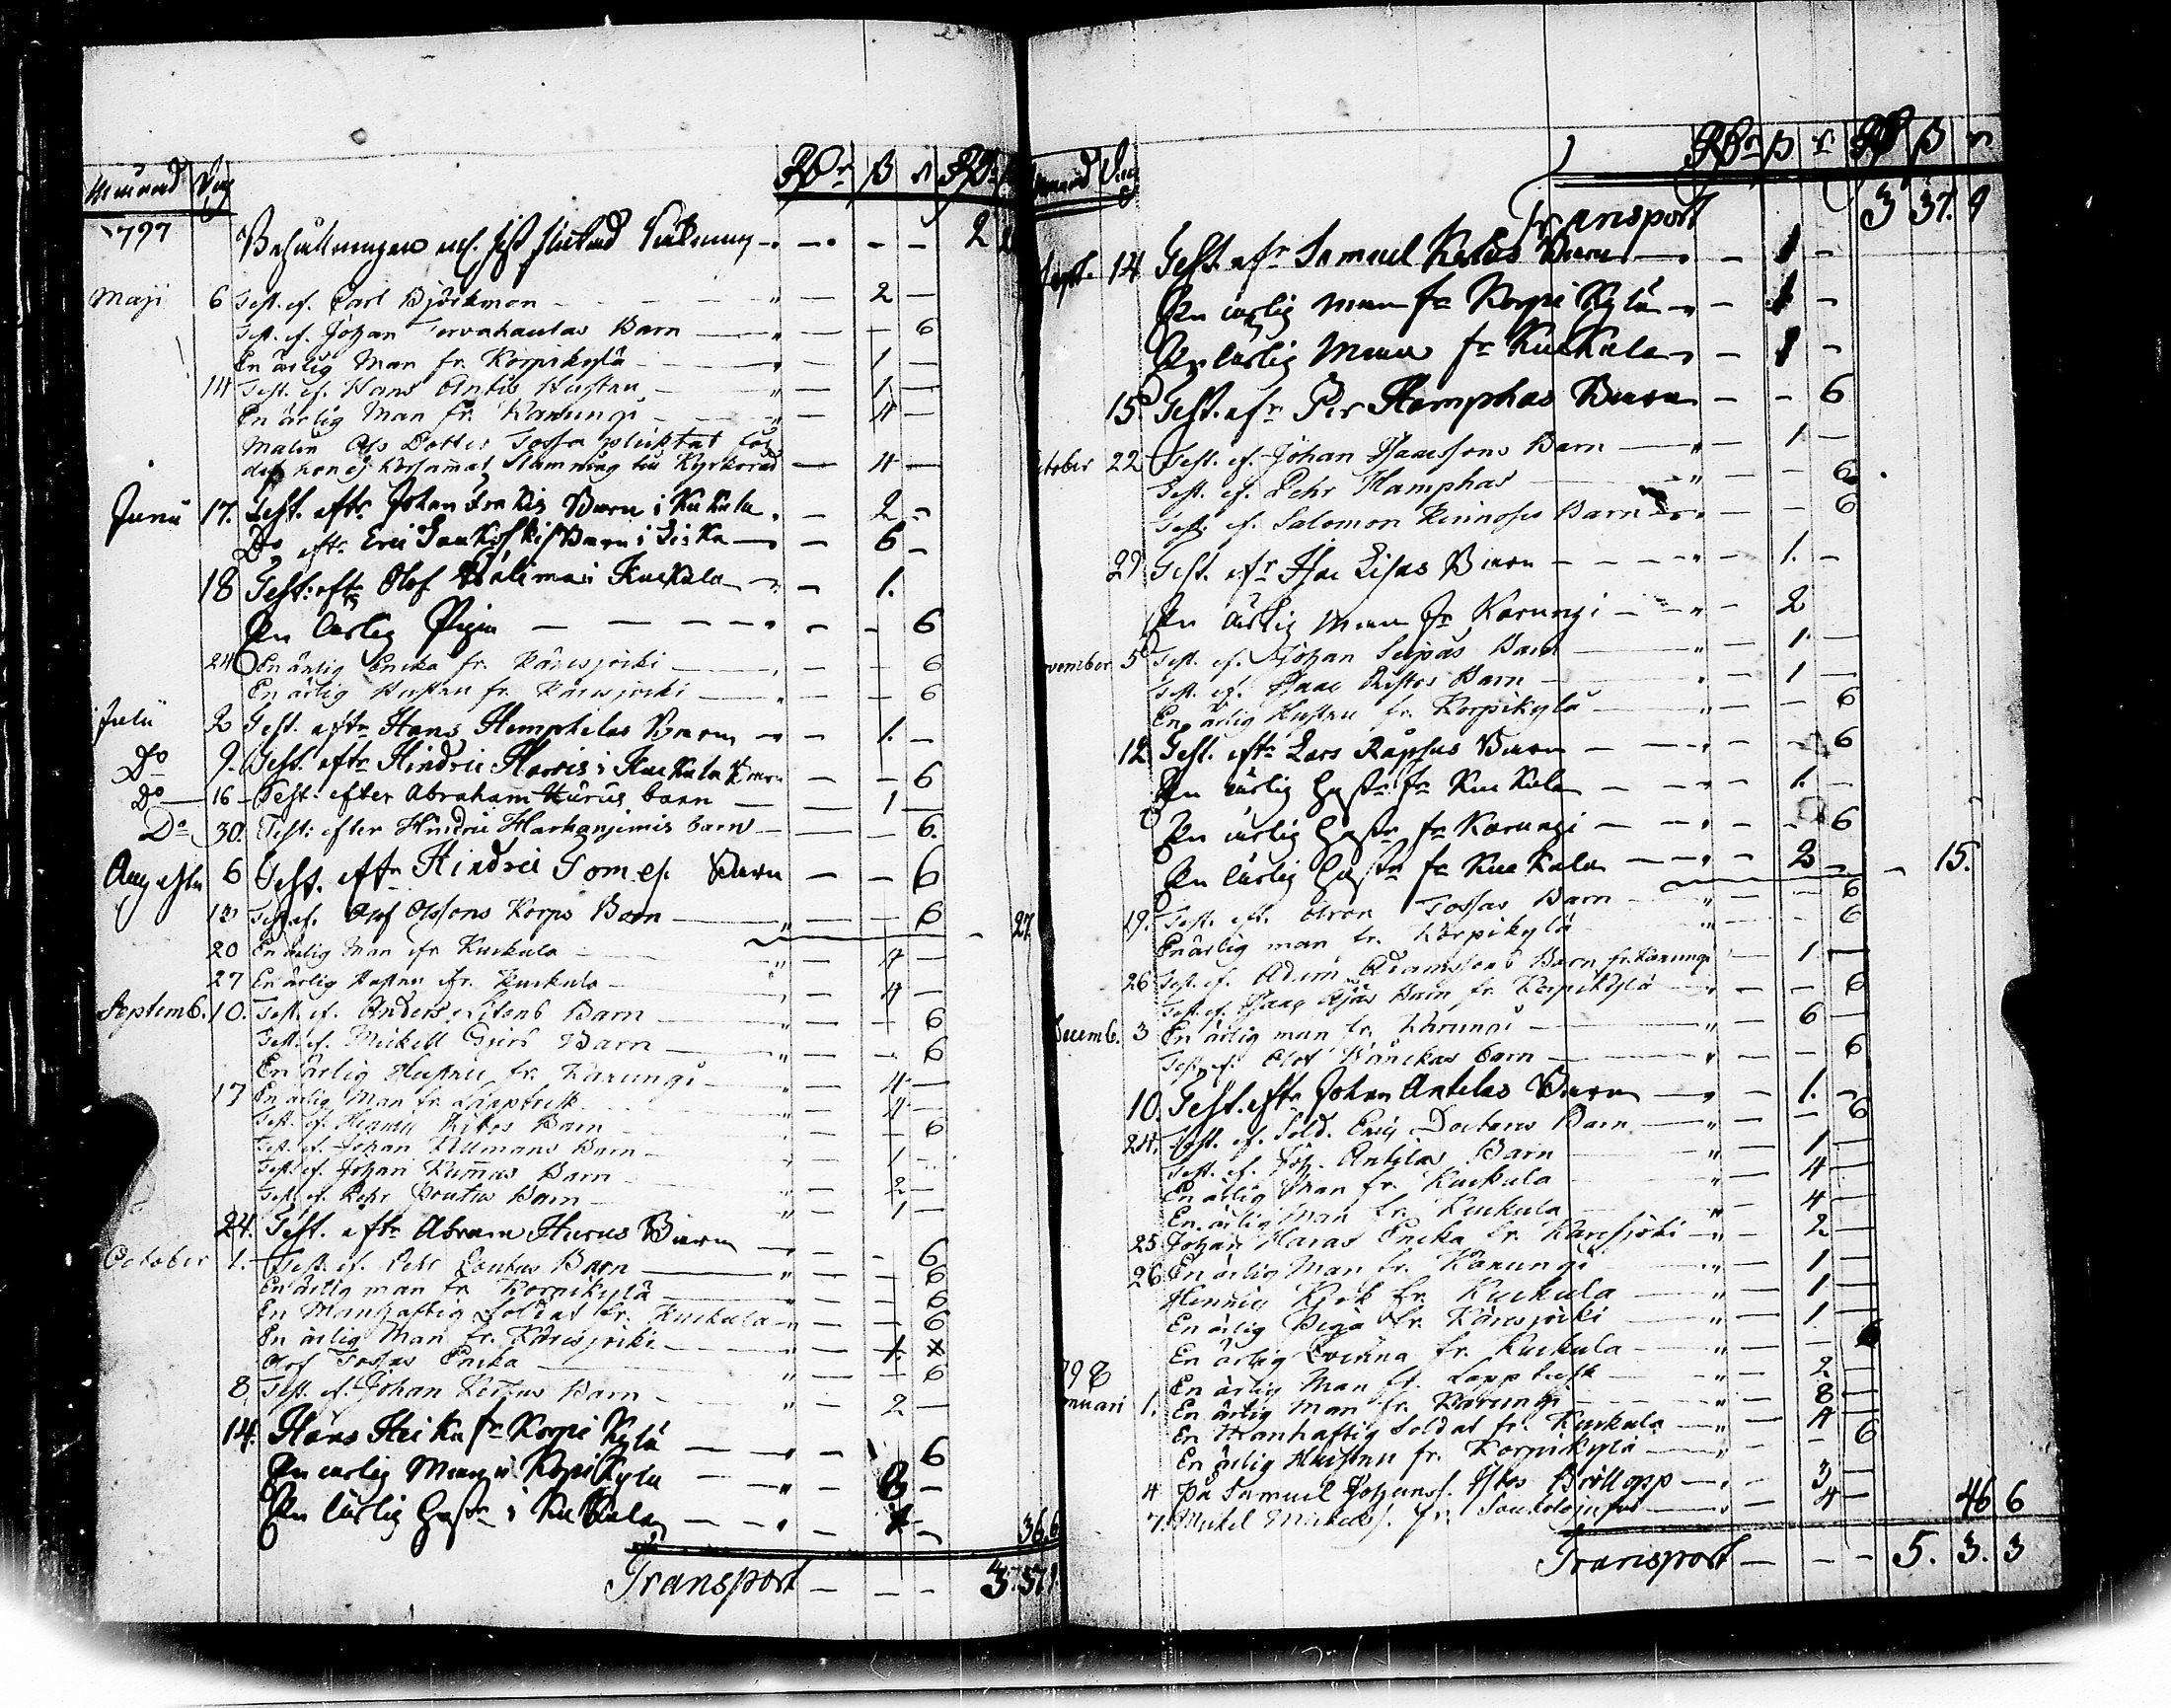 Månad Dag Rd. ß r Rd.
1797 Behållningen vid sist slutad Räkning - - - - 2
Maji 6 Test. ef. Carl Björkman - - - " - 2 -
Test. ef. Johan Tervahautas Barn - " - - 6
En ärlig Man fr. Korpikylä - " - 1 -
14 Test. ef. Hans Antis Hustru - " - 1 -
En ärlig Man fr. Karungi - " - 4 -
Malin Ols Dotter Tossa pliktat för
det hon ej hörsammat Stämning till Kyrkoråd - 4 -
Junii 17. Test. eftr. Johan Barn i Kukula - 2 -
Do eftr Eric Barn i - 6 -
18 Test: eftr Olof Välima i Kuckula - 1.
En ärlig Piga - - - - - 6
24 En ärlig Encka fr. Karesjocki - - - 6
En ärlig Hustru fr. Karesjocki - - - 6
Julii 2 Test. eftr Hans Hemphilas Barn - - 1. -
Do 9. Test. eftr Hindric Harris i Kuckula Barn - - 6
Do 16 Test. efter Abraham Hurus barn - - 1 -
Do 30. Test: efter Hindric Harhanjemis barn - - - 6.
Augusti 6 Test. eftr Hindric Tomes. Barn - - 6
13 Test. ef. Olof Olssons Korpo Barn - " - - 6 - 27
20 En ärlig Man fr. Kuckula - " - 4 -
27 En ärlig Hustru fr. Kuckula - " - 4 -
Septemb. 10. Test. ef. Anders Litens Barn - " - - 6
Test. ef. Mickell Barn - " - - 6
En ärlig Hustru fr. Karungi - " - 4 -
17 En ärlig Man fr. Lapptresk - " - 4 -
Test. ef. Henric Barn - " - - 6
Test. ef. Johan Barn - " - 1 -
Test. ef. Johan Kummus Barn - " - 2 -
Test. ef. Pehr Barn - " - 1 -
24. Test. eftr Abram Hurus Barn - - - 6
October 1. Test. ef. Pehr Barn - " - - 6
En ärlig man fr. Korpikylä - " - - 6
En Manhaftig Soldat fr. Kuckula - " - - 6
En ärlig Man fr. Karesjocki - " - 1. x
Olof Tossas Encka - " - - 6
8 Test. ef. Johan Barn - " - 2 -
14. Hans Heika fr Korpi Kylä - - - 6
En ärlig Man i Kopi Kylä - " - 8 -
En ärlig Hustr i Kukkula - - - 36.6
Transport - - - 3. 37.9
Månad Dag Rd. ß r Rd ß r
Transport 3 37. 9
Sept. 14 Test. eftr Samuel Barn - - 1 -
En ärlig Man fr Korpi Kylä - - 1 -
En ärlig Man fr Kuckula - - 1 -
15. Test. eftr Per Hamphas Barn - - 6
October 22 Test. ef. Johan Isacssons Barn - " - 1 -
Test. ef. Pehr Hamphas - " - - 6.
Test. ef. Salomon Barn - - - 6
29 Test. eftr Isac Barn - - - " - 1. -
En ärlig Man fr Karungi - - " - 2
November 5 Test. ef. Johan Barn - " - 1 -
Test. ef. Isaac Barn - " - 1 -
En ärlig Hustru fr. Korpikylä - " - - 6
12. Test. eftr Lars Barn - - " - - 6
En ärlig Hustr fr Kuckula - - " - 1. -
En ärlig Hustr fr Karungi - - " - - 6
En ärlig Hustr fr Kuckula - - " - 2 - - 15.
19. Test. eft. Tossas Barn - " - - 6
En ärlig man fr. Korpikylä " - - 6
26 Test. ef. Adam Adamssons Barn fr. Karungi - 1 -
Test. ef. Isaac Barn fr. Korpikylä - " - - 6
Decemb. 3 En ärlig man fr. Karungi - " - 6 -
Test. ef. Olof barn - " - - 6
10. Test. eftr Johan Antilas Barn - " - 1. -
24. Test. ef. Sold. Eric Barn - " - - 6
Test. ef. Joh. Antilas Barn - " - 1 -
En ärlig Man fr. Kuckula - " - 4 -
En ärlig Man fr. Kuckula - " - 4 -
25 Johan Encka fr. Karesjocki - " - 2 -
26 En ärlig Man fr. Karungi - " - 1 -
Hennric fr. Kuckula - " - 1 -
En ärlig Piga fr. Karesjocki - " - 1 -
En ärlig Qvinna fr. Kuckula - " - - 6
798 En ärlig Man fr. Lapptresk - " - 2 -
Januari 1. En ärlig Man fr. Karungi - " - 8 -
En Manhaftig Soldat fr. Kuckula - " - 4 -
En ärlig Hustru fr. Korpikylä - " - - 6
4 På Samuel Johanss. Bröllopp - " - 3 -
7. Mickel Mickels. fr. - " - 4 - 46 6
Transport - - - 5. 3. 3